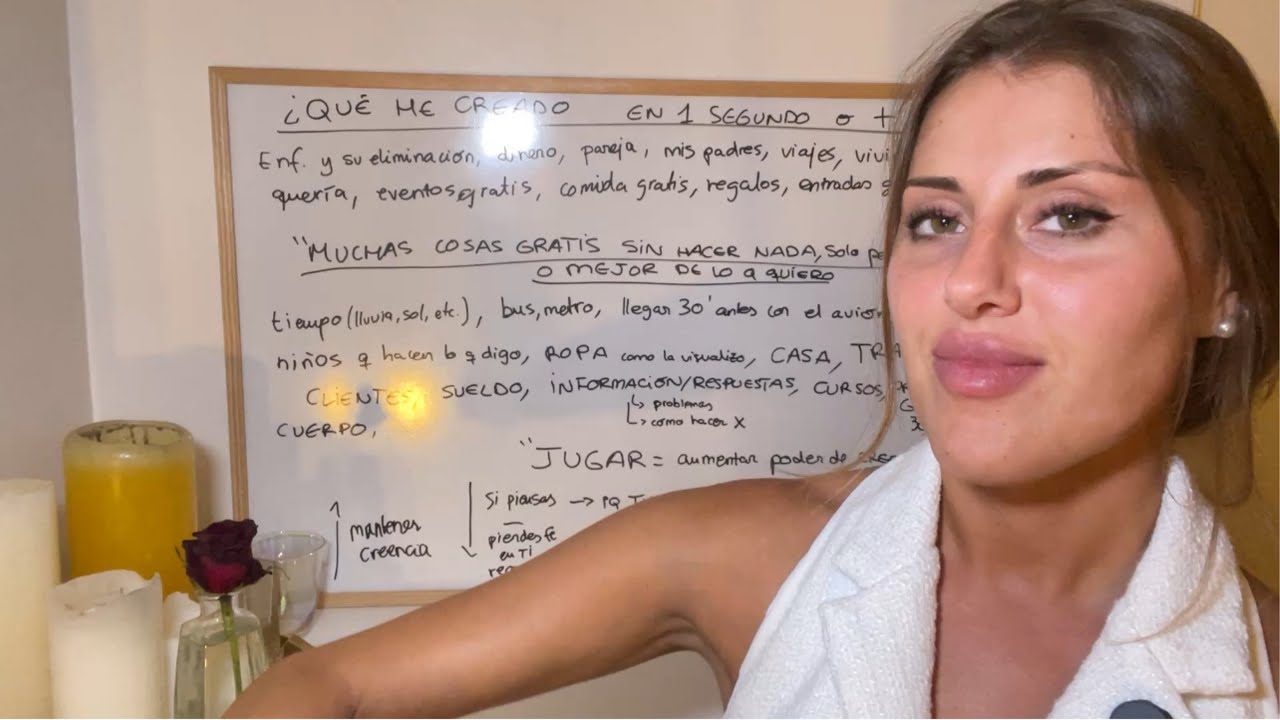 ¿QUÉ HE CREADO EN 1 SEGUNDO o +
Enf. y su eliminación, dinero, pareja, mis padres, viajes,
quería, eventos gratis, comida gratis, regalos, entradas
"MUCHAS COSAS GRATIS SIN HACER NADA, Solo
O MEJOR DE LO q QUIERO
tiempo (lluvia, sol, etc.), bus, metro, llegar 30' antes con el avión
niños q hacen lo q digo, ROPA como la visualizo, CASA,
CLIENTES, SUELDO, INFORMACIÓN/RESPUESTAS, CURSOS,
↳ problemas
↳ como hacer X
CUERPO,
"JUGAR = aumentar poder de
↑ mantener
creencia
↓ Si piensas → PQ
pierdes fe
en TI